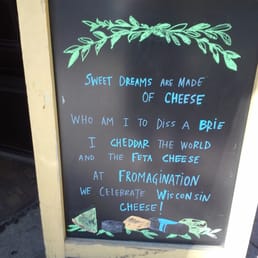 SWEET DREAMS ARE MADE
OF CHEESE
WHO AM I TO DISS A BRIE
I CHEDDAR THE WORLD
AND THE FETA CHEESE
AT FROMAGINATION
WE CELEBRATE WISCONSIN
CHEESE!